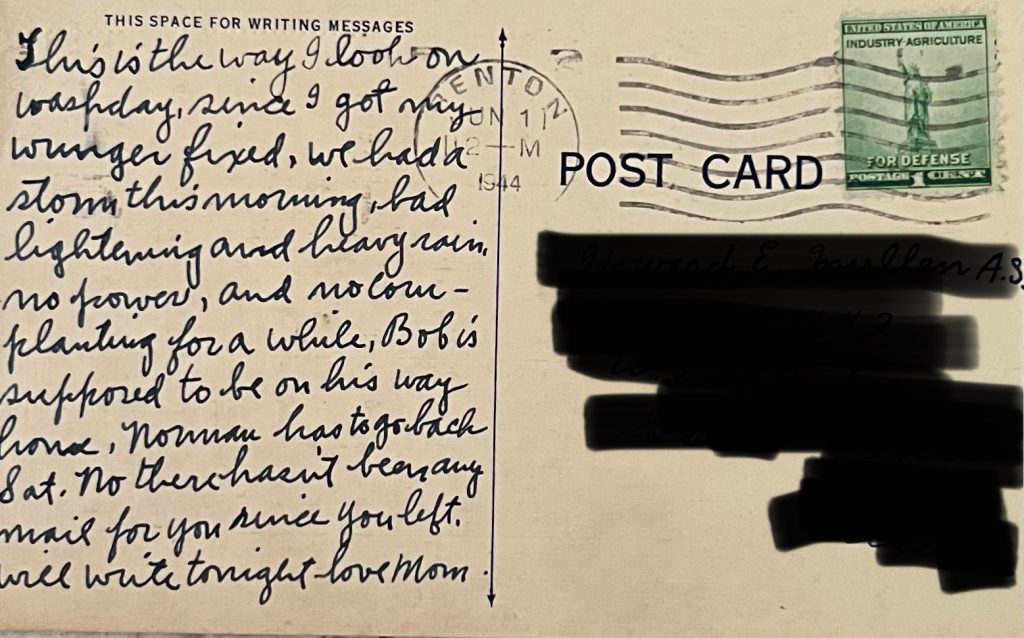 THIS SPACE FOR WRITING MESSAGES
This is the way I look on
washday, since I got my
wringer fixed, we had a
storm this morning, bad
lightening and heavy rain,
no power, and no corn-
planting for a while, Bob is
supposed to be on his way
home, Norman has to go back
Sat. No there hasn't been any
mail for you since you left.
will write tonight-love Mom.
JUN 1
2—M
1944
POST CARD
UNITED STATES OF AMERICA
INDUSTRY·AGRICULTURE
FOR DEFENSE
POSTAGE 1 CENT